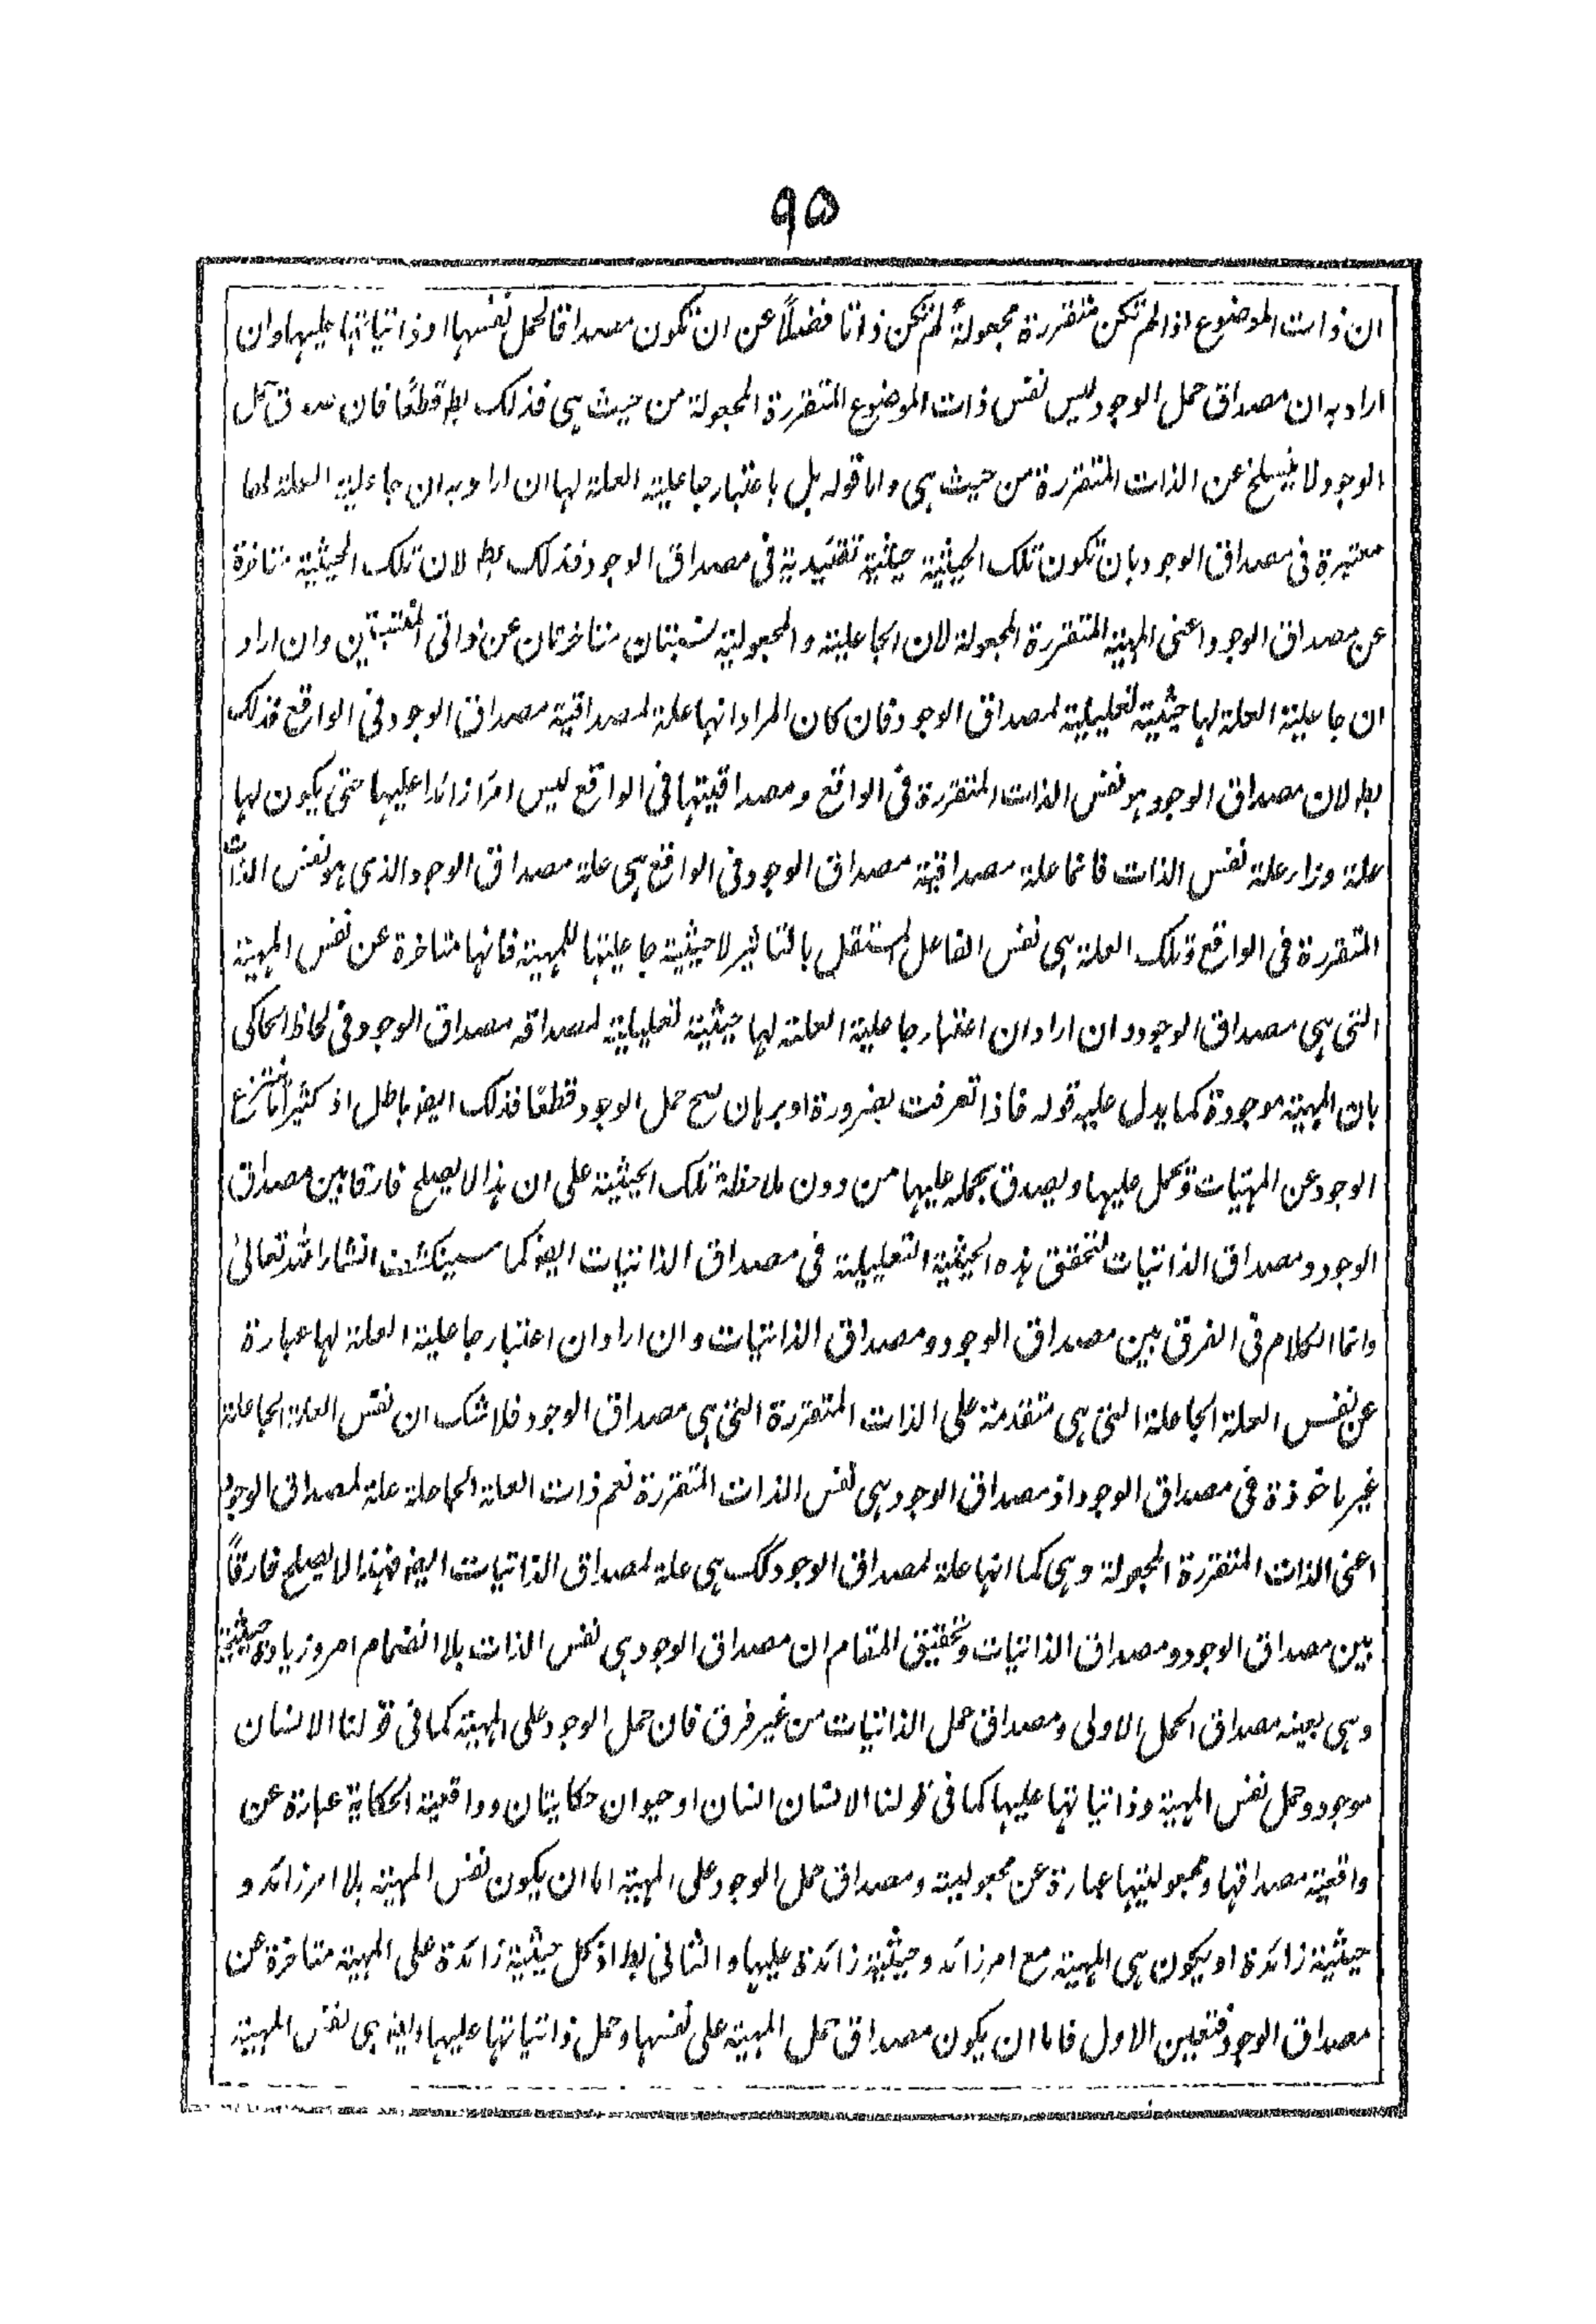 ٩٥
ان ذات الموضوع اذا لم تكن متقررة مجعولة لم تكن ذاتا فضلاً عن ان تكون مصداقا لحمل نفسها او ذاتياتها عليها وان
اراد به ان مصداق حمل الوجود ليس نفس ذات الموضوع المتقررة المجعولة من حيث هى فذلك بط قطعًا فان مصداق حمل
الوجود لا ينسلخ عن الذات المتقررة من حيث هى واما قوله بل باعتبار جاعلية العلة لها ان اراد به ان جاعلية العلة لها
معتبرة فى مصداق الوجود بان تكون تلك الحيثية حيثية تقييدية فى مصداق الوجود فذلك بط لان تلك الحيثية متاخرة
عن مصداق الوجود اعنى المهية المتقررة المجعولة لان الجاعلية والمجعولية نسبتان متاخرتان عن ذواتى المنتسبين وان اراد
ان جاعلية العلة لها حيثية تعليلية لمصداق الوجود فان كان المراد انها علة لمصداقية مصداق الوجود فى الواقع فذلك
بط لان مصداق الوجود هو نفس الذات المتقررة فى الواقع ومصداقيتها فى الواقع ليس امرًا زائدا عليها حتى يكون لها
علة وراء علة نفس الذات فانما علة مصداقية مصداق الوجود فى الواقع هى علة مصداق الوجود الذى هو نفس الذات
المتقررة فى الواقع وتلك العلة هى نفس الفاعل المستقل بالتاثير لا حيثية جاعليتها للمهية فانها متاخرة عن نفس المهية
التى هى مصداق الوجود وان اراد ان اعتبار جاعلية العلة لها حيثية تعليلية لمصداقه مصداق الوجود فى لحاظ الحاكى
بان المهية موجودة كما يدل عليه قوله فاذا تعرفت بضرورة او برهان صح حمل الوجود قطعًا فذلك ايضً باطل اذ كثيرًا ما ننتزع
الوجود عن المهيات ونحمل عليها ويصدق بحمله عليها من دون ملاحظة تلك الحيثية على ان هذا لا يصلح فارقا بين مصداق
الوجود ومصداق الذاتيات لتحقق هذه الحيثية التعليلية فى مصداق الذاتيات ايضً كما سينكشف انشاء الله تعالى
وانما الكلام فى الفرق بين مصداق الوجود ومصداق الذاتيات وان اراد ان اعتبار جاعلية العلة لها عبارة
عن نفس العلة الجاعلة التى هى متقدمة على الذات المتقررة التى هى مصداق الوجود فلا شك ان نفس العلة الجاعلة
غير ماخوذة فى مصداق الوجود اذ مصداق الوجود هى نفس الذات المتقررة نعم ذات العلة الجاعلة علة لمصداق الوجود
اعنى الذات المتقررة المجعولة وهى كما انها علة لمصداق الوجود كك هى علة لمصداق الذاتيات ايضً فهذا لا يصلح فارقاً
بين مصداق الوجود ومصداق الذاتيات وتحقيق المقام ان مصداق الوجود هى نفس الذات بلا انضمام امر وزيادة حيثية
وهى بعينه مصداق الحمل الاولى ومصداق حمل الذاتيات من غير فرق فان حمل الوجود على المهية كما فى قولنا الانسان
موجود وحمل نفس المهية وذاتياتها عليها كما فى قولنا الانسان انسان او حيوان حكايتان وواقعية الحكاية عبارة عن
واقعية مصداقها ومجعوليتها عبارة عن مجعوليته ومصداق حمل الوجود على المهية اما ان يكون نفس المهية بلا امر زائد و
حيثية زائدة او يكون هى المهية مع امر زائد وحيثية زائدة عليها والثانى بط اذ كل حيثية زائدة على المهية متاخرة عن
مصداق الوجود فتعين الاول فاما ان يكون مصداق حمل المهية على نفسها وحمل ذاتياتها عليها ايضً هى نفس المهية